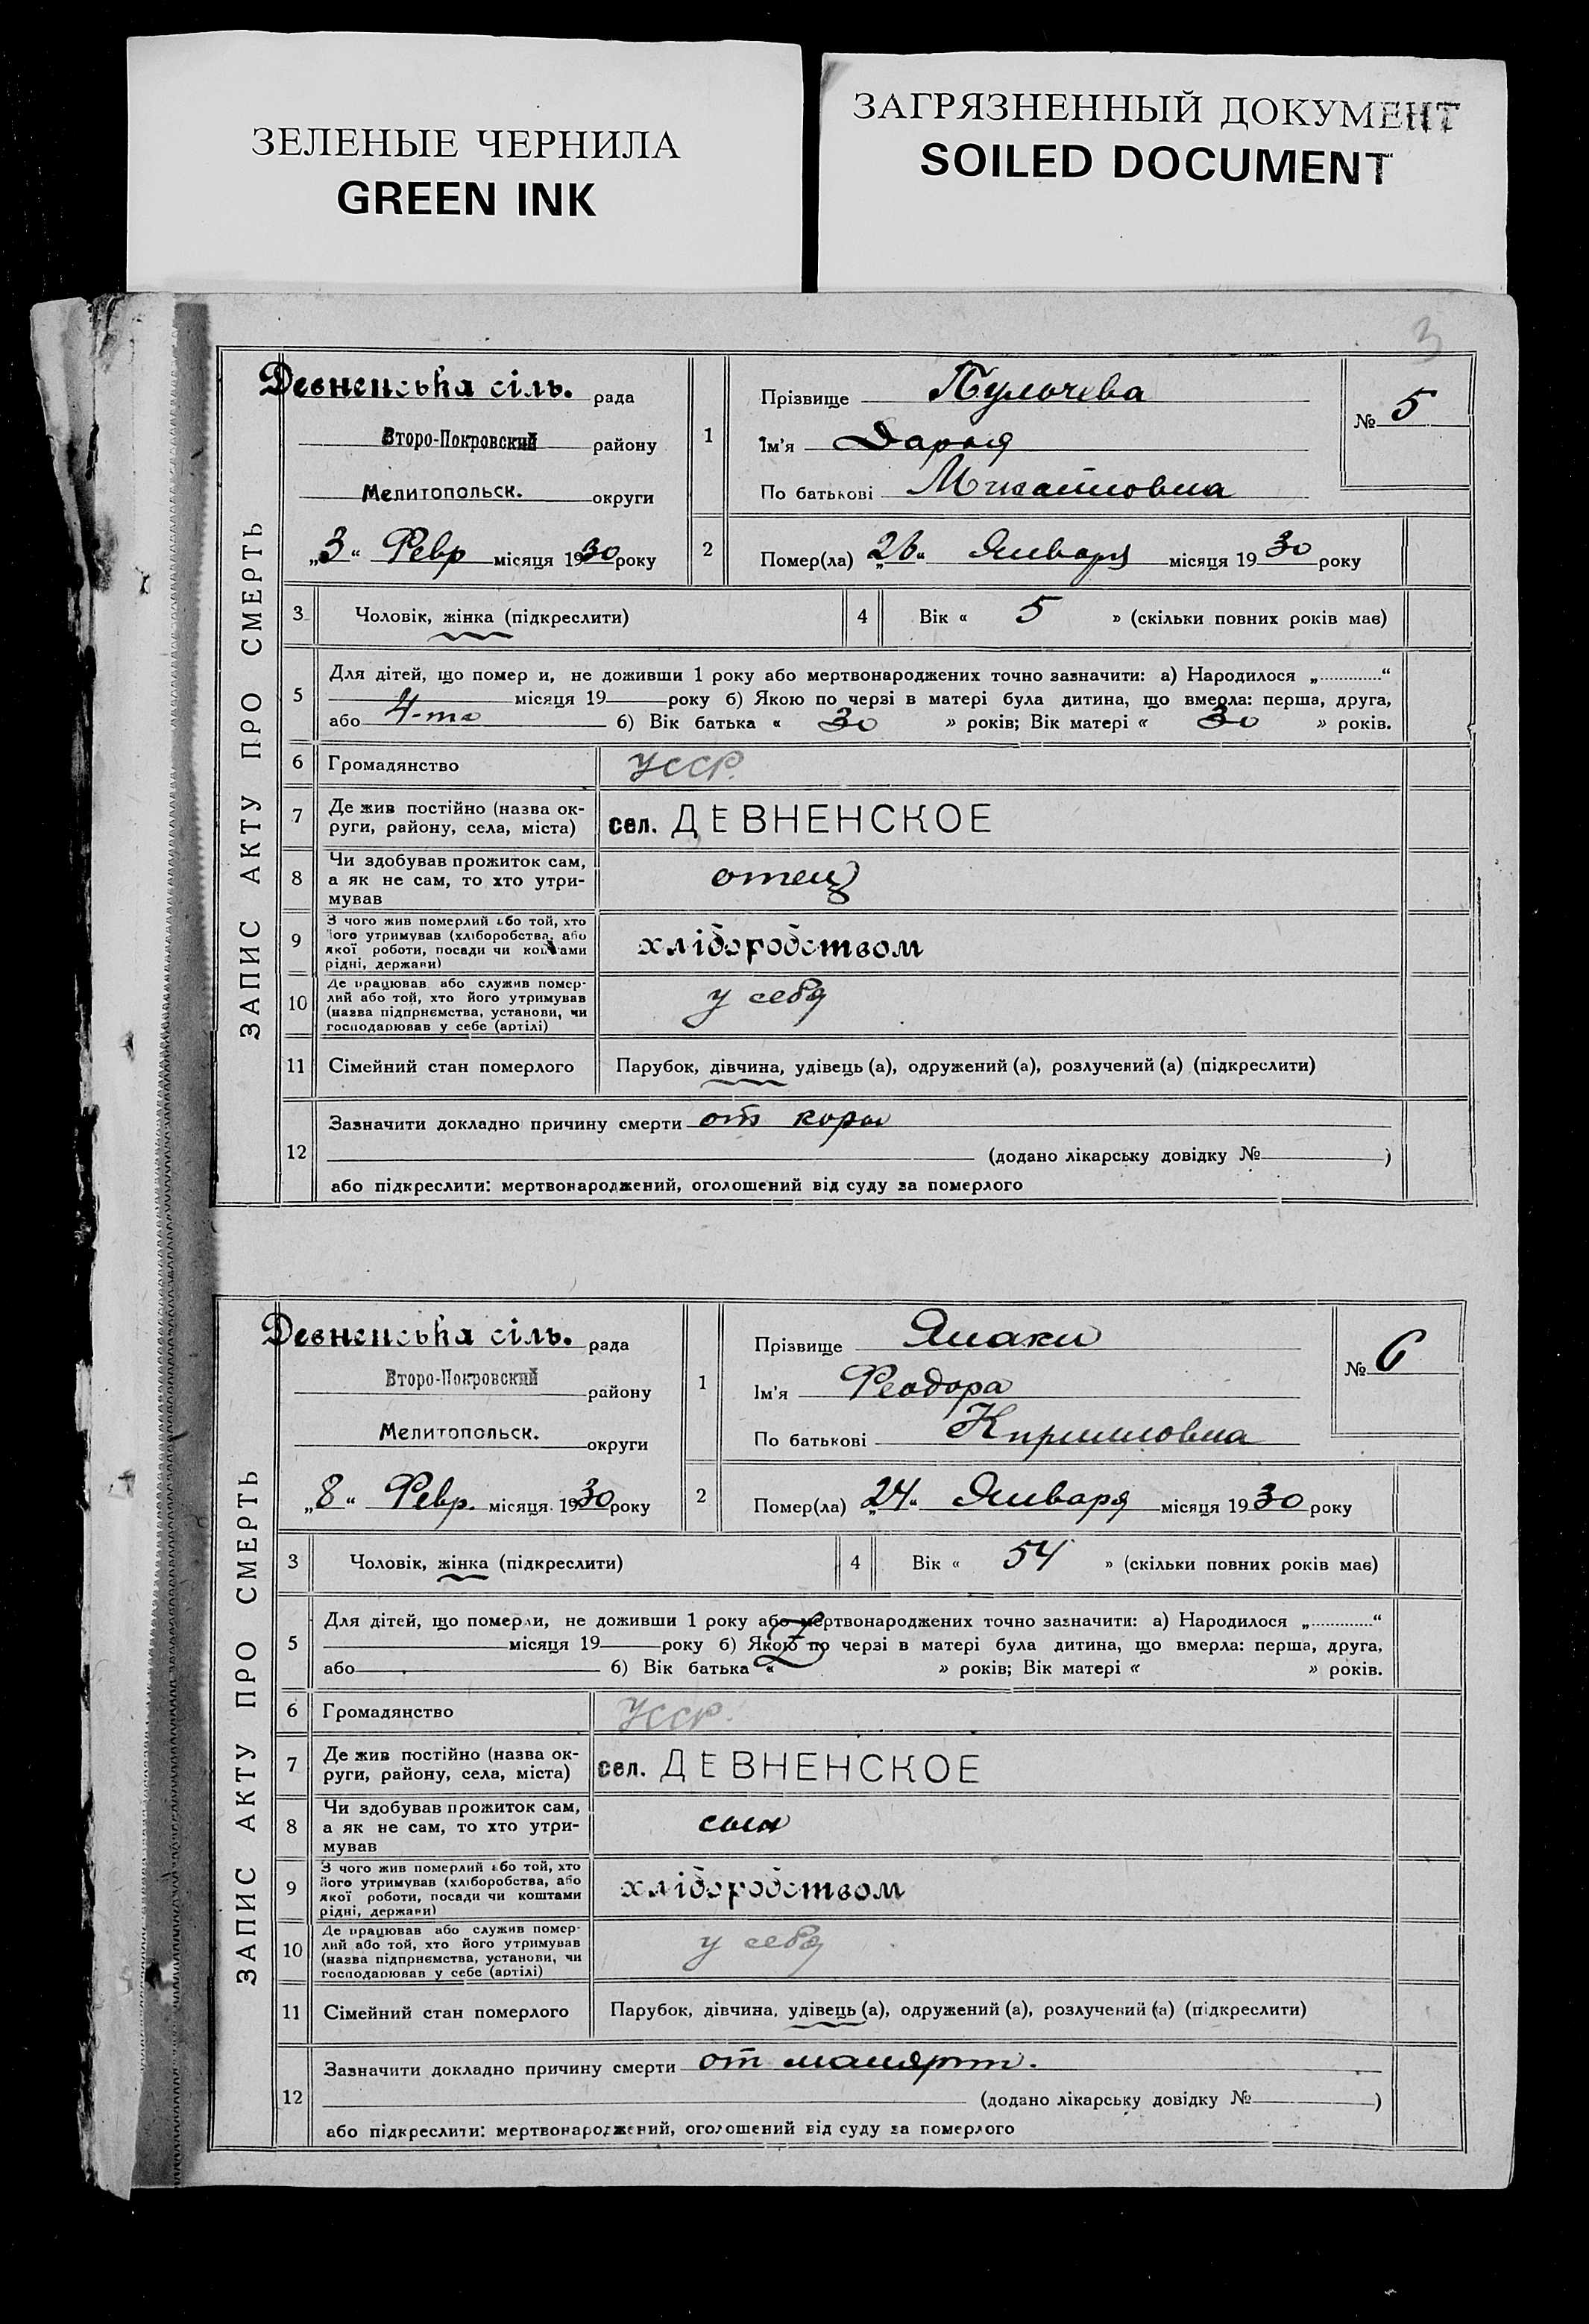 ЗЕЛЕНЫЕ ЧЕРНИЛА
GREEN INK
ЗАГРЯЗНЕННЫЙ ДОКУМЕНТ
SOILED DOCUMENT
3
ЗАПИС АКТУ ПРО СМЕРТЬ
Девненська сіль. рада
Второ-Покровский району
Мелитопольск. округи
„3“ Февр місяця 1930 року
1
Прізвище
Ім'я Дарья
По батькові Михайловна
№ 5
2 Помер(ла) „26“ Января місяця 1930 року
3 Чоловік, жінка (підкреслити)
4 Вік « 5 » (скільки повних років має)
5 Для дітей, що помер и, не доживши 1 року або мертвонароджених точно зазначити: а) Народилося „............“
місяця 19 року б) Якою по черзі в матері була дитина, що вмерла: перша, друга,
або 4-та б) Вік батька « 30 » років; Вік матері « 30 » років.
6 Громадянство УССР.
7 Де жив постійно (назва ок-
руги, району, села, міста) сел. ДЕВНЕНСКОЕ
8 Чи здобував прожиток сам,
а як не сам, то хто утри-
мував отец
9 З чого жив померлий або той, хто
його утримував (хліборобства, або
якої роботи, посади чи коштами
рідні, держави) хліборобством
10 Де працював або служив помер-
лий або той, хто його утримував
(назва підприємства, установи, чи
господарював у себе (артілі) у себя
11 Сімейний стан померлого Парубок, дівчина, удівець (а), одружений (а), розлучений (а) (підкреслити)
12 Зазначити докладно причину смерти от коры
(додано лікарську довідку № )
або підкреслити: мертвонароджений, оголошений від суду за померлого
ЗАПИС АКТУ ПРО СМЕРТЬ
Девненська сіль. рада
Второ-Покровский району
Мелитопольск. округи
„8“ Февр. місяця 1930 року
1
Прізвище
Ім'я Феодора
По батькові Кирилловна
№ 6
2 Помер(ла) „24“ Января місяця 1930 року
3 Чоловік, жінка (підкреслити)
4 Вік « 54 » (скільки повних років має)
5 Для дітей, що померли, не доживши 1 року або мертвонароджених точно зазначити: а) Народилося „............“
місяця 19 року б) Якою по черзі в матері була дитина, що вмерла: перша, друга,
або б) Вік батька « » років; Вік матері « » років.
6 Громадянство УССР.
7 Де жив постійно (назва ок-
руги, району, села, міста) сел. ДЕВНЕНСКОЕ
8 Чи здобував прожиток сам,
а як не сам, то хто утри-
мував сын
9 З чого жив померлий або той, хто
його утримував (хліборобства, або
якої роботи, посади чи коштами
рідні, держави) хліборобством
10 Де працював або служив помер-
лий або той, хто його утримував
(назва підприємства, установи, чи
господарював у себе (артілі) у себя
11 Сімейний стан померлого Парубок, дівчина, удівець (а), одружений (а), розлучений (а) (підкреслити)
12 Зазначити докладно причину смерти от
(додано лікарську довідку № )
або підкреслити: мертвонароджений, оголошений від суду за померлого